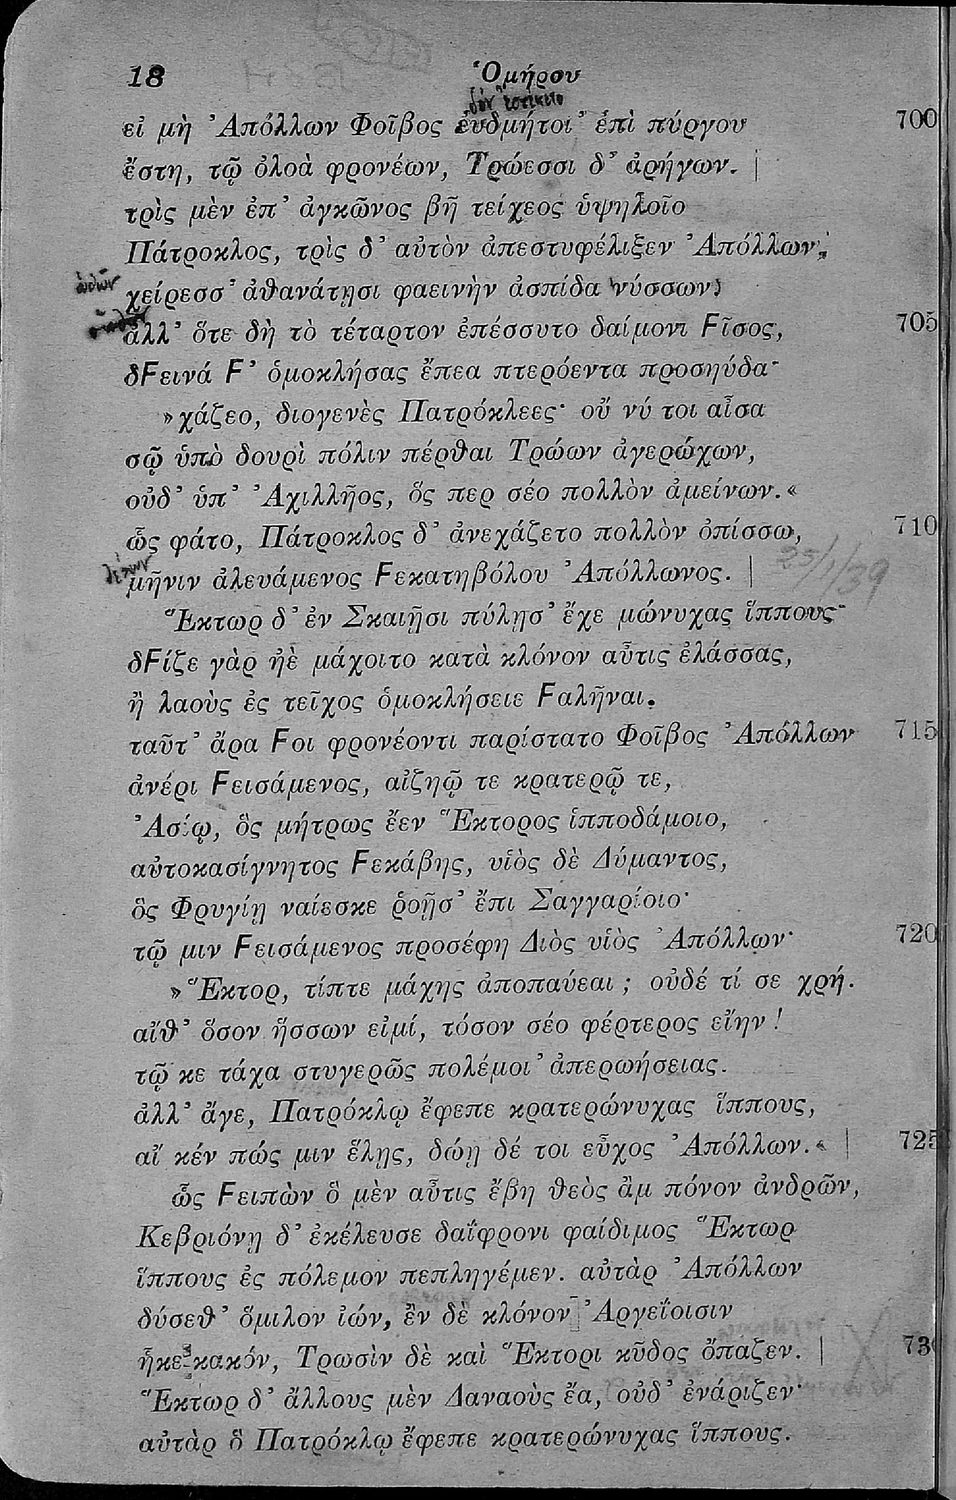 18 Ὁμήρου
εἰ μὴ Ἀπόλλων Φοῖβος ἐυδμήτοι᾽ ἐπὶ πύργου 700
ἔστη, τῷ ὀλοὰ φρονέων, Τρώεσσι δ᾽ ἀρήγων.
τρὶς μὲν ἐπ᾽ ἀγκῶνος βῆ τείχεος ὑψηλοῖο
Πάτροκλος, τρὶς δ᾽ αὐτὸν ἀπεστυφέλιξεν Ἀπόλλων,
χείρεσσ᾽ ἀθανάτῃσι φαεινὴν ἀσπίδα νύσσων·
ἀλλ᾽ ὅτε δὴ τὸ τέταρτον ἐπέσσυτο δαίμονι Ϝῖσος, 705
δϜεινά Ϝ᾽ ὁμοκλήσας ἔπεα πτερόεντα προσηύδα·
»χάζεο, διογενὲς Πατρόκλεες· οὔ νύ τοι αἶσα
σῷ ὑπὸ δουρὶ πόλιν πέρθαι Τρώων ἀγερώχων,
οὐδ᾽ ὑπ᾽ Ἀχιλλῆος, ὅς περ σέο πολλὸν ἀμείνων.«
ὣς φάτο, Πάτροκλος δ᾽ ἀνεχάζετο πολλὸν ὀπίσσω, 710
μῆνιν ἀλευάμενος Ϝεκατηβόλου Ἀπόλλωνος.
25/1/39
Ἕκτωρ δ᾽ ἐν Σκαιῇσι πύλῃσ᾽ ἔχε μώνυχας ἵππους·
δϜίζε γὰρ ἠὲ μάχοιτο κατὰ κλόνον αὖτις ἐλάσσας,
ἢ λαοὺς ἐς τεῖχος ὁμοκλήσειε Ϝαλῆναι.
ταῦτ᾽ ἄρα Ϝοι φρονέοντι παρίστατο Φοῖβος Ἀπόλλων 715
ἀνέρι Ϝεισάμενος, αἰζηῷ τε κρατερῷ τε,
Ἀσίῳ, ὃς μήτρως ἔεν Ἕκτορος ἱπποδάμοιο,
αὐτοκασίγνητος Ϝεκάβης, υἱὸς δὲ Δύμαντος,
ὃς Φρυγίῃ ναίεσκε ῥοῇσ᾽ ἔπι Σαγγαρίοιο·
τῷ μιν Ϝεισάμενος προσέφη Διὸς υἱὸς Ἀπόλλων· 720
»Ἕκτορ, τίπτε μάχης ἀποπαύεαι; οὐδέ τί σε χρή.
αἴθ᾽ ὅσον ἥσσων εἰμί, τόσον σέο φέρτερος εἴην!
τῷ κε τάχα στυγερῶς πολέμοι᾽ ἀπερωήσειας.
ἀλλ᾽ ἄγε, Πατρόκλῳ ἔφεπε κρατερώνυχας ἵππους,
αἴ κέν πώς μιν ἕλῃς, δώῃ δέ τοι εὖχος Ἀπόλλων.« 725
ὣς Ϝειπὼν ὃ μὲν αὖτις ἔβη θεὸς ἂμ πόνον ἀνδρῶν,
Κεβριόνῃ δ᾽ ἐκέλευσε δαΐφρονι φαίδιμος Ἕκτωρ
ἵππους ἐς πόλεμον πεπληγέμεν. αὐτὰρ Ἀπόλλων
δύσεθ᾽ ὅμιλον ἰών, ἐν δὲ κλόνον Ἀργεΐοισιν
ἧκε κακόν, Τρωσὶν δὲ καὶ Ἕκτορι κῦδος ὄπαζεν. 73
Ἕκτωρ δ᾽ ἄλλους μὲν Δαναοὺς ἔα, οὐδ᾽ ἐνάριζεν·
αὐτὰρ ὃ Πατρόκλῳ ἔφεπε κρατερώνυχας ἵππους.